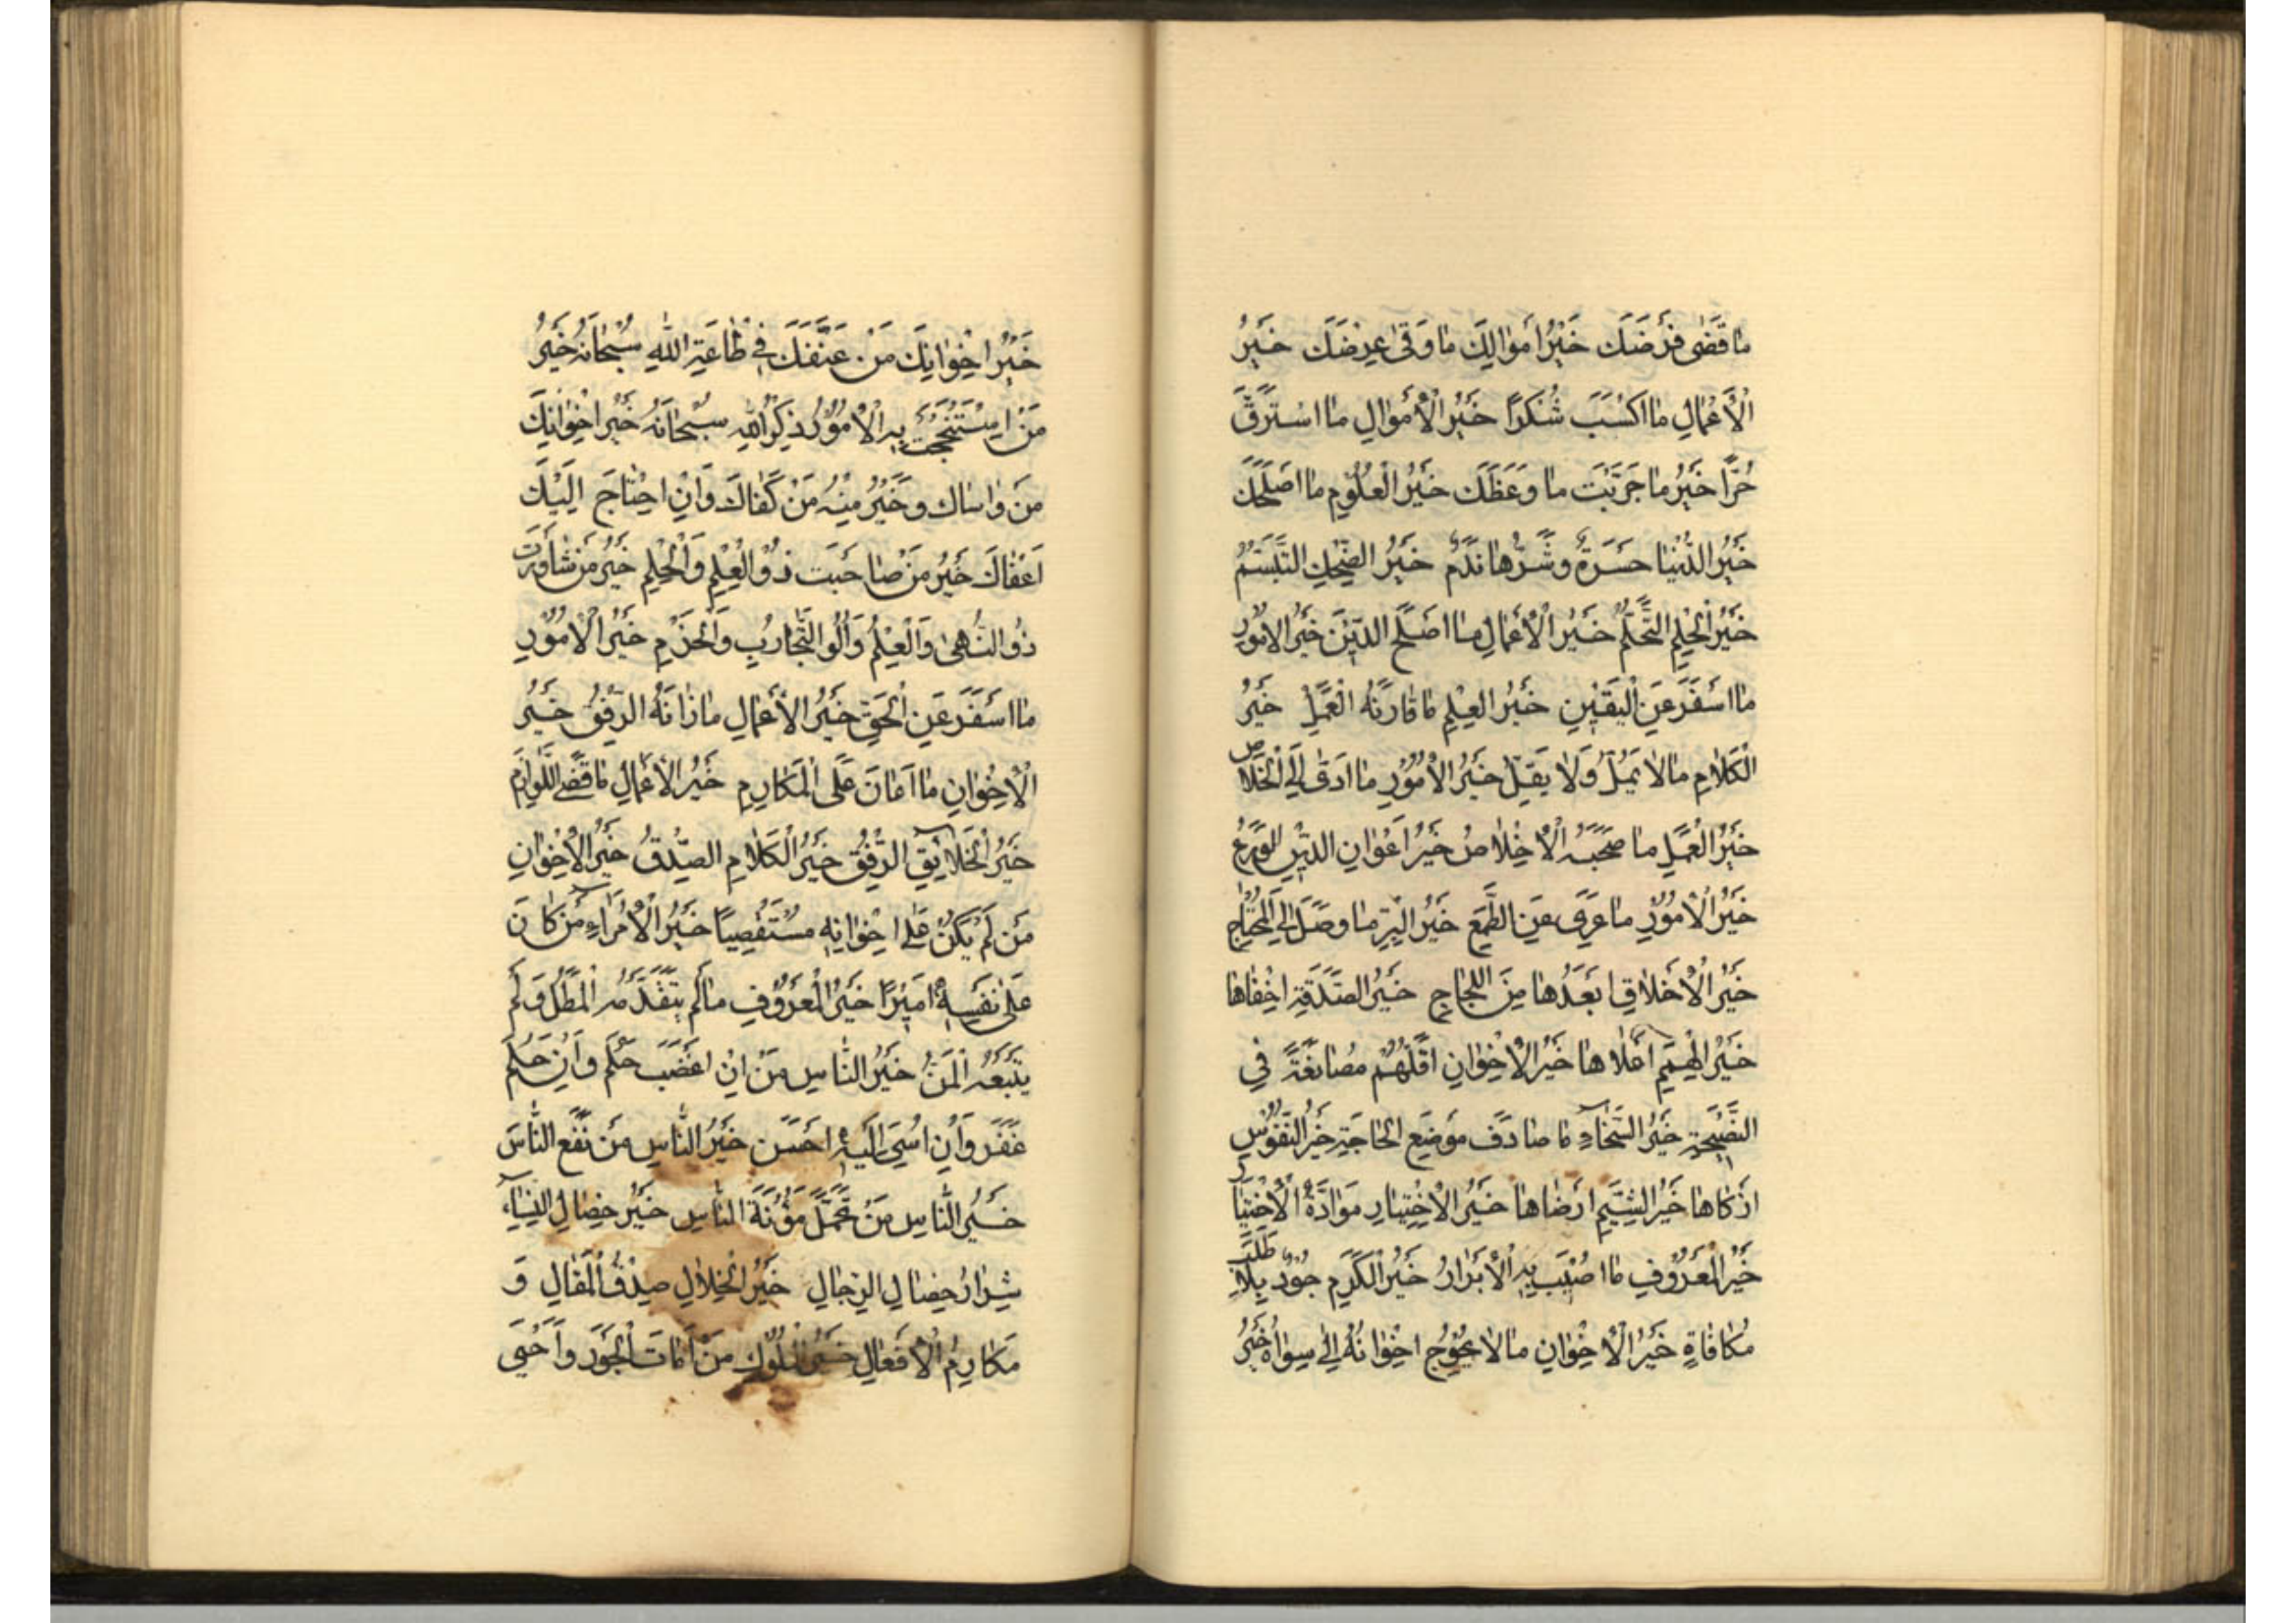 مَا قَضٰى فَرْضَكَ خَيْرُ اَمْوَالِكَ مَا وَقٰى عِرْضَكَ خَيْرُ
الْاَعْمَالِ مَا اكْسَبَ شُكْرًا خَيْرُ الْاَمْوَالِ مَا اسْتَرَقَّ
حُرًّا خَيْرُ مَا جَرَّبْتَ مَا وَعَظَكَ خَيْرُ الْعُلُوْمِ مَا اَصْلَحَكَ
خَيْرُ الدُّنْيَا حَسَرَةٌ وَشَرُّهَا نَدَمٌ خَيْرُ الضِّحْكِ التَّبَسُّمُ
خَيْرُ الْحِلْمِ التَّحَلُّمُ خَيْرُ الْاَعْمَالِ مَا اَصْلَحَ الدِّيْنَ خَيْرُ الْاُمُوْرِ
مَا اَسْفَرَ عَنِ الْيَقِيْنِ خَيْرُ الْعِلْمِ مَا قَارَنَهُ الْعَمَلُ خَيْرُ
الْكَلَامِ مَا لَا يُمِلُّ وَلَا يَقِلُّ خَيْرُ الْاُمُوْرِ مَا اَدّٰى اِلَى الْخَلَاصِ
خَيْرُ الْعَمَلِ مَا صَحِبَهُ الْاِخْلَاصُ خَيْرُ اَعْوَانِ الدِّيْنِ الْوَرَعُ
خَيْرُ الْاُمُوْرِ مَا عَرِىَ عَنِ الطَّمَعِ خَيْرُ الْبِرِّ مَا وَصَلَ اِلَى الْمُحْتَاجِ
خَيْرُ الْاَخْلَاقِ اَبْعَدُهَا مِنَ اللَّجَاجِ خَيْرُ الصَّدَقَةِ اَخْفَاهَا
خَيْرُ الْهِمَمِ اَعْلَاهَا خَيْرُ الْاِخْوَانِ اَقَلُّهُمْ مُصَانَعَةً فِي
النَّصِيْحَةِ خَيْرُ السَّخَاءِ مَا صَادَفَ مَوْضِعَ الْحَاجَةِ خَيْرُ النُّفُوْسِ
اَزْكَاهَا خَيْرُ الشِّيَمِ اَرْضَاهَا خَيْرُ الْاِخْتِيَارِ مَوَادَّةُ الْاَخْيَارِ
خَيْرُ الْمَعْرُوْفِ مَا اُصِيْبَ بِهِ الْاَبْرَارُ خَيْرُ الْكَرَمِ جُوْدٌ بِلَا طَلَبِ
مُكَافَاةٍ خَيْرُ الْاِخْوَانِ مَا لَا يُحْوِجُ اِخْوَانَهُ اِلٰى سِوَاهُ خَيْرُ
خَيْرُ اِخْوَانِكَ مَنْ عَنَّفَكَ فِي طَاعَةِ اللّٰهِ سُبْحَانَهُ خَيْرُ
مَنِ اسْتَنْجَحْتَ بِهِ الْاُمُوْرَ ذِكْرُ اللّٰهِ سُبْحَانَهُ خَيْرُ اِخْوَانِكَ
مَنْ وَاسَاكَ وَخَيْرٌ مِنْهُ مَنْ كَفَاكَ وَاِنِ احْتَاجَ اِلَيْكَ
اَعْفَاكَ خَيْرُ مَنْ صَاحَبْتَ ذَوُو الْعِلْمِ وَالْحِلْمِ خَيْرُ مَنْ شَاوَرْتَ
ذَوُو النُّهٰى وَالْعِلْمِ وَاُلُو التَّجَارِبِ وَالْحَزْمِ خَيْرُ الْاُمُوْرِ
مَا اَسْفَرَ عَنِ الْحَقِّ خَيْرُ الْاَعْمَالِ مَا زَانَهُ الرِّفْقُ خَيْرُ
الْاِخْوَانِ مَا اَعَانَ عَلَى الْمَكَارِمِ خَيْرُ الْاَعْمَالِ مَا قَضَى اللَّوَازِمَ
خَيْرُ الْخَلَائِقِ الرِّفْقُ خَيْرُ الْكَلَامِ الصِّدْقُ خَيْرُ الْاِخْوَانِ
مَنْ لَمْ يَكُنْ عَلٰى اِخْوَانِهِ مُسْتَقْصِيًا خَيْرُ الْاُمَرَاءِ مَنْ كَانَ
عَلٰى نَفْسِهِ اَمِيْرًا خَيْرُ الْمَعْرُوْفِ مَا لَمْ يَتَقَدَّمْهُ الْمَطْلُ وَلَمْ
يَتْبَعْهُ الْمَنُّ خَيْرُ النَّاسِ مَنْ اِنْ اُغْضِبَ حَلُمَ وَاِنْ ظُلِمَ
غَفَرَ وَاِنْ اُسِيَ اِلَيْهِ اَحْسَنَ خَيْرُ النَّاسِ مَنْ نَفَعَ النَّاسَ
خَيْرُ النَّاسِ مَنْ تَحَمَّلَ مَؤُنَةَ النَّاسِ خَيْرُ خِصَالِ النِّسَاءِ
شِرَارُ خِصَالِ الرِّجَالِ خَيْرُ الْخِلَالِ صِدْقُ الْمَقَالِ وَ
مَكَارِمُ الْاَفْعَالِ خَيْرُ الْمُلُوْكِ مَنْ اَمَاتَ الْجَوْرَ وَاَحْيَى